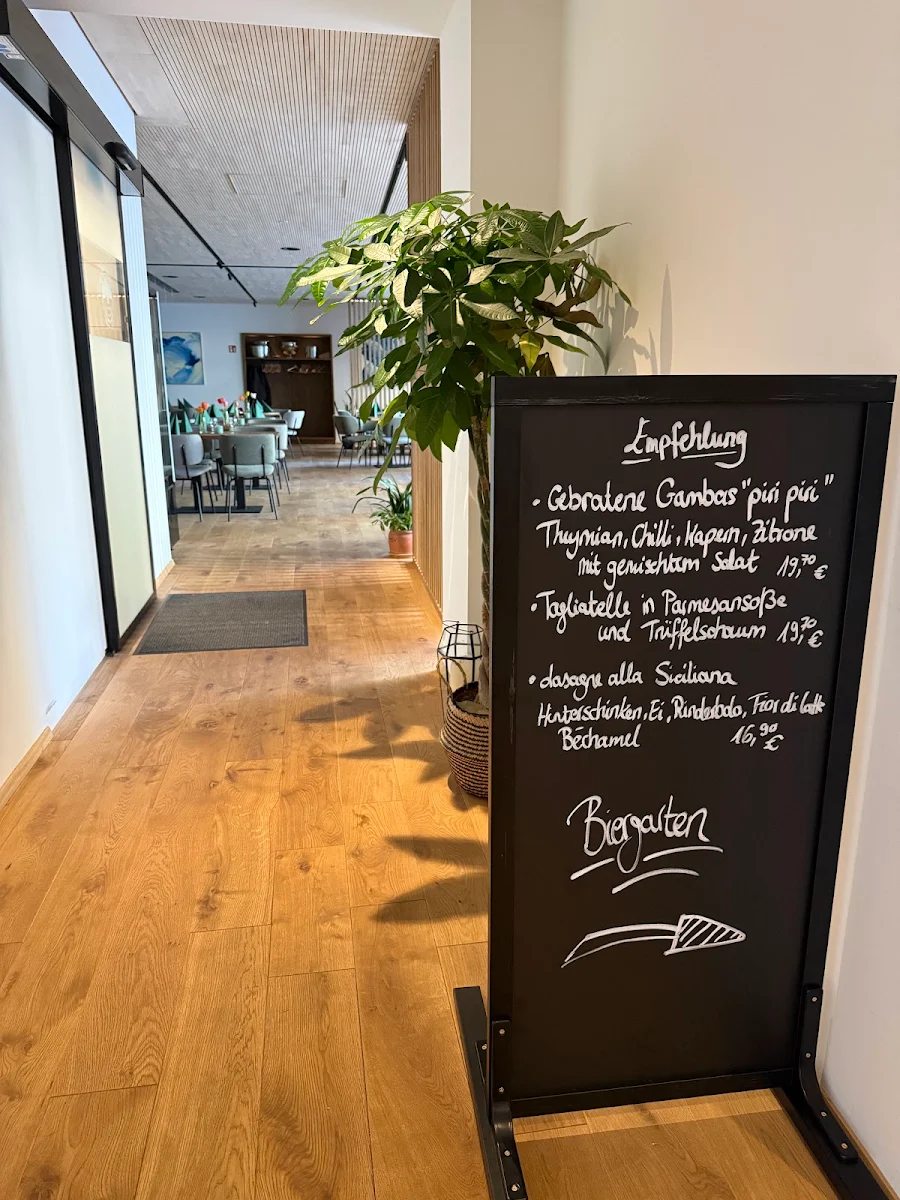 Empfehlung
• Gebratene Gambas "piri piri"
Thymian, Chilli, Kapern, Zitrone
mit gemischtem Salat 19,70 €
• Tagliatelle in Parmesansoße
und Trüffelschaum 19,70 €
• Lasagne alla Siciliana
Hinterschinken, Ei, Rinderbolo, Fior di Latte
Béchamel 16,90 €
Biergarten